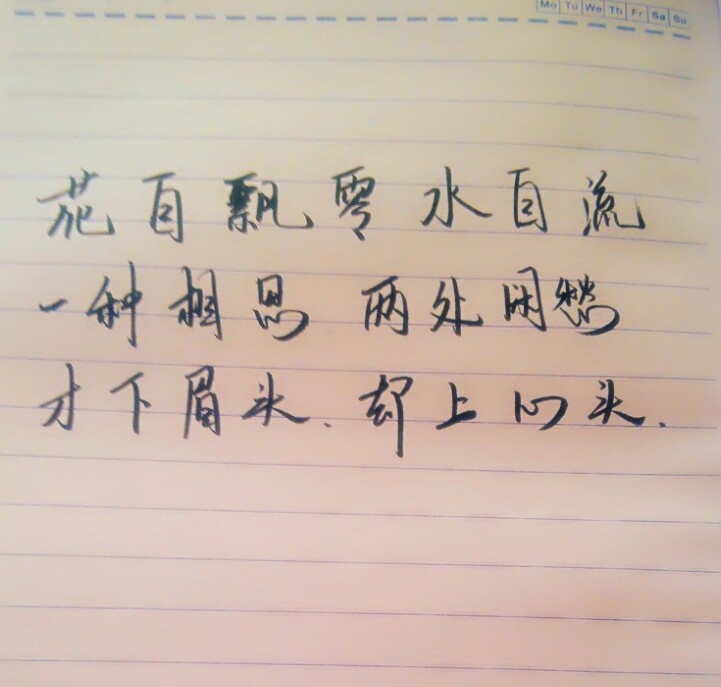 Mo Tu We Th Fr Sa Su
花自飘零水自流
一种相思 两处闲愁
才下眉头、却上心头.